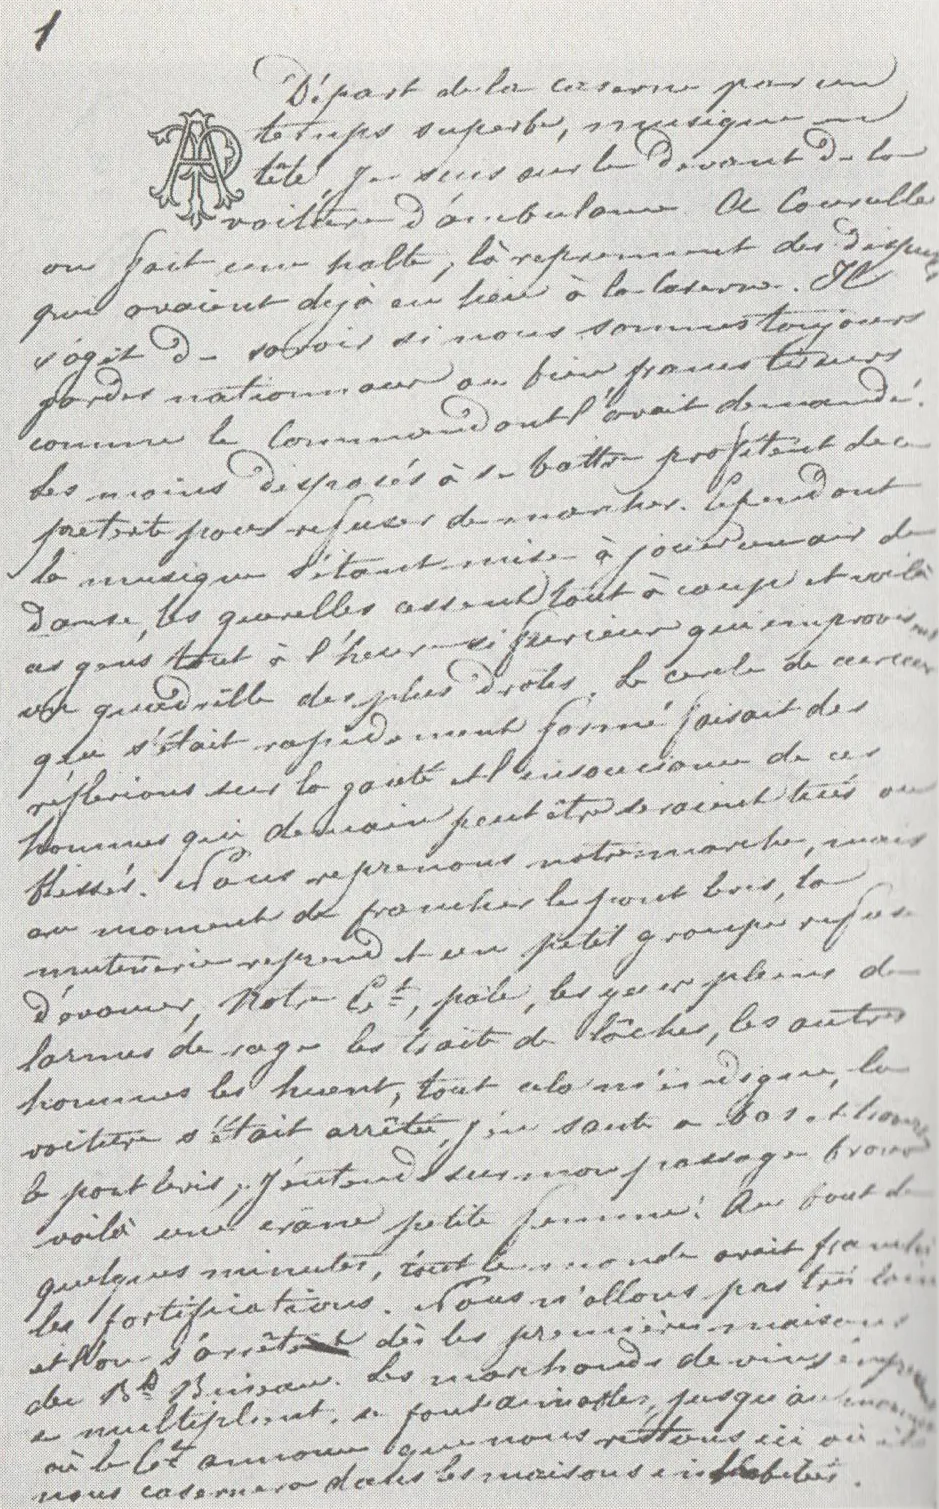 1
Départ de la caserne par un
AP
temps superbe, musique en
tête, je suis sur le devant de la
voiture d'ambulance. A Courcelle
on fait une halte, là reprennent des disputes
qui avaient déjà eu lieu à la caserne. Il
s'agit de savoir si nous sommes toujours
gardes nationaux ou bien francs tireurs
comme le Commandant l'avait demandé.
Les moins disposés à se battre profitent de ce
prétexte pour refuser de marcher. Cependant
la musique s'étant mise à jouer un air de
danse, les querelles cessent tout à coup et voilà
ces gens tout à l'heure si furieux qui improvisent
un quadrille des plus drôles. Le cercle de curieux
qui s'était rapidement formé faisait des
réflexions sur la gaieté et l'insouciance de ces
hommes qui demain peut être seraient tués ou
blessés. Nous reprenons notre marche, mais
au moment de franchir le pont levis, la
mutinerie reprend et un petit groupe refuse
d'avancer, Notre Ct, pâle, les yeux pleins de
larmes de rage les traite de lâches, les autres
hommes les huent, tout cela m'indigne, la
voiture s'était arrêtée, j'en saute à bas et traverse
le pont levis, j'entends sur mon passage bravo
voilà une crâne petite femme! Au bout de
quelques minutes, tout le monde avait franchi
les fortifications. Nous n'allons pas très loin
et l'on s'arrête dès les premières maisons
du Bd Bineau. Les marchands de vins
se multiplient, se font aimables, jusqu'au moment
où le Ct annonce que nous restons ici où il
nous casernera dans les maisons inhabitées.